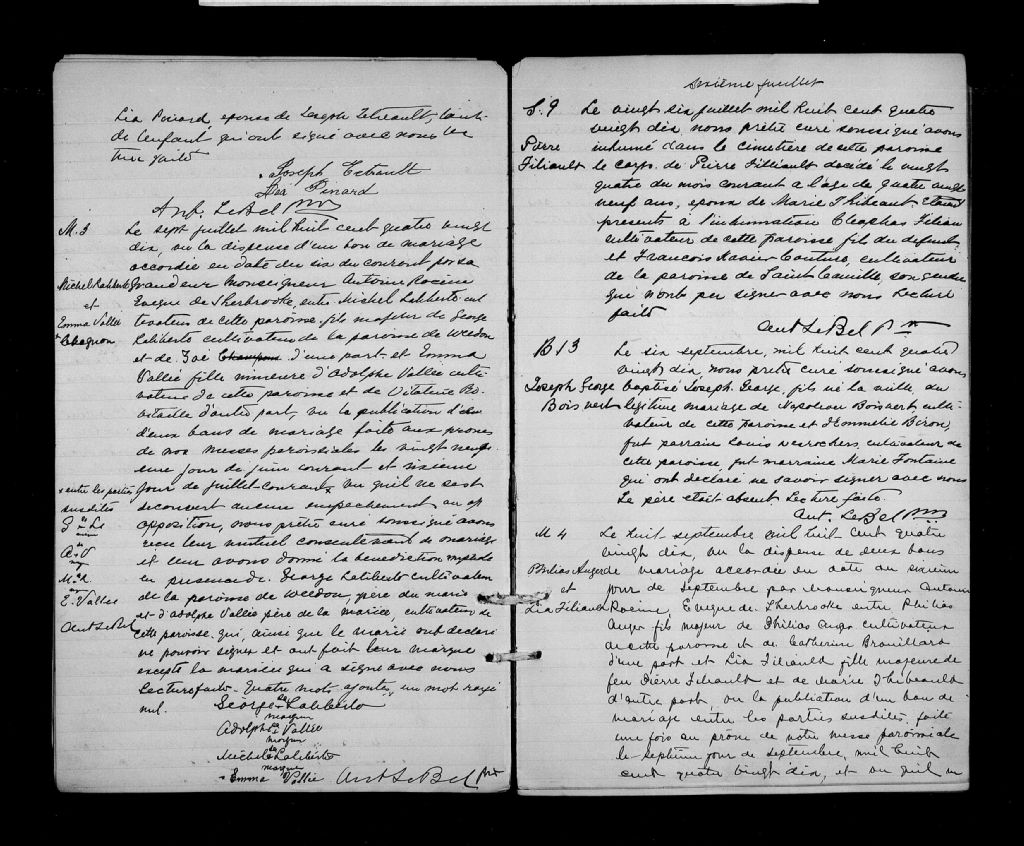 Lia Pinard epouse de Joseph Tetreault, tante
de l'enfant qui ont signé avec nous lec
ture faite
Joseph Tetrault
Lia Pinard
Ant. LeBel Ptre
M. 3
Michel Laliberté
et
Emma Vallée
Chagnon
Le sept juillet mil huit cent quatre vingt
dix, vu la dispense d'un ban de mariage
accordée en date du six du courant par sa
Grandeur Monseigneur Antoine Racine
Evêque de Sherbrooke, entre Michel Laliberté cul
tivateur de cette paroisse, fils majeur de George
Laliberté cultivateur de la paroisse de Weedon
et de Zoé d'une part, et Emma
Vallée fille mineure d'Adolphe Vallée culti
vateur de cette paroisse et de
d'autre part, vu la publication
deux bans de mariage faite aux prones
de nos messes paroissiales les vingt neuv
ieme jour de juin courant et sixieme
jour de juillet courant x vu qu'il ne sest
decouvert aucun empêchement ou op
opposition, nous prêtre curé soussigné avons
recu leur mutuel consentement de mariage
et leur avons donné la benediction nuptiale
en presence de George Laliberté cultivateur
de la paroisse de Weedon, père du marié
et d'Adolphe Vallée père de la mariée, cultivateur de
cette paroisse, qui, ainsi que le marié ont declaré
ne pouvoir signer et ont fait leur marque
excepté la mariée qui a signé avec nous
Lecture faite. Quatre mots ajoutés, un mot rayé
nul.
x entre les parties
susdites
G. L.
A. V
M. L
E. Vallée
Ant LeBel
George sa Laliberté
marque
Adolphe sa Vallée
marque
Michel sa Laliberté
marque
Emma Vallée Ant LeBel Ptre
sixième feuillet
S. 9
Pierre
Filiault
Le vingt six juillet mil huit cent quatre
vingt dix, nous prêtre curé soussigné avons
inhumé dans le cimetière de cette paroisse
le corps de Pierre Filliault decédé le vingt
quatre du mois courant a l'age de quatre vingt
neuf ans, epoux de Marie Thibeault Etaient
presents à l'inhumation Cleophas Filiau
cultivateur de cette paroisse fils du defunt
et Francois Xavier Couture, cultivateur
de la paroisse de Saint Camille, son gendre
qui n'ont pu signer avec nous Lecture
faite
Ant LeBel Ptre
B 13
Joseph George
Boisvert
Le six septembre, mil huit cent quatre
vingt dix, nous prêtre curé soussigné avons
baptisé Joseph George, fils né la veille, du
légitime mariage de Napoléon Boisvert culti-
vateur de cette paroisse et d'Emmelie Biron,
fut parrain Louis Desrochers, cultivateur de
cette paroisse, fut marraine Marie Fontaine
qui ont declaré ne savoir signer avec nous
Le père etait absent. Lecture faite.
Ant. LeBel Ptre
M 4
Philias Auger
et
Lia Filiault
Le huit septembre mil huit cent quatre
vingt dix, vu la dispense de deux bans
de mariage accordée en date du sixieme
jour de septembre par Monseigneur Antoine
Racine, Eveque de Sherbrooke entre Philias
Auger fils majeur de Philias Auger cultivateur
de cette paroisse et de Catherine Brouillard
d'une part et Lia Filiault fille majeure de
feu Pierre Filiault et de Marie Thibeault
d'autre part, vu la publication d'un ban de
mariage entre les parties susdites, faite
une fois au prone de notre messe paroissiale
le septième jour de septembre, mil huit
cent quatre vingt dix, et vu qu'il n